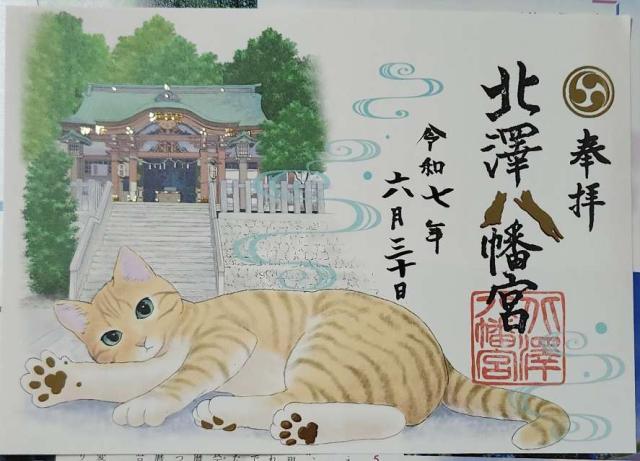 奉拝
北澤八幡宮
令和七年
六月三十日
北澤
八幡宮